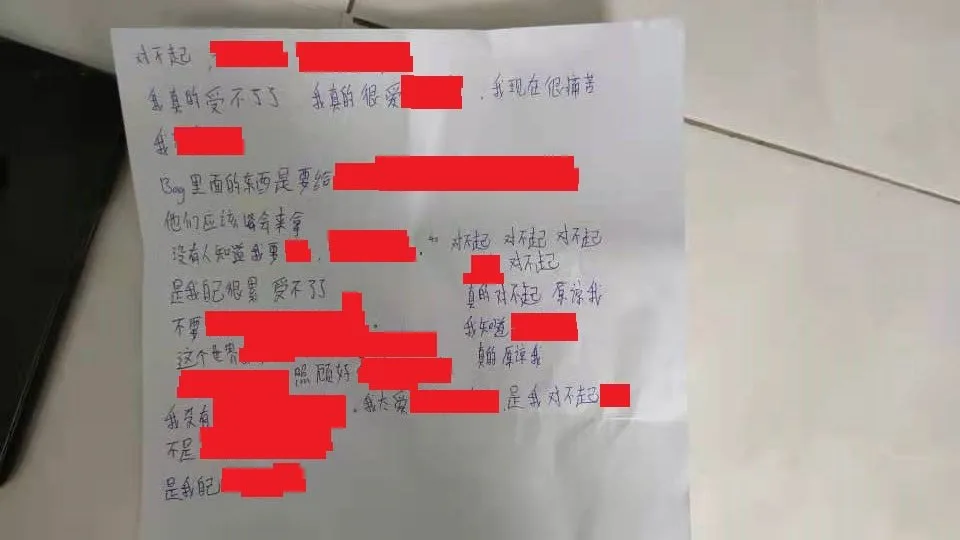 对不起，
我真的受不了了 我真的很爱 ，我现在很痛苦
我
Bag里面的东西是要给
他们应该 会来拿
没有人知道我要 ， 。
是我自己很累 受不了了
不要 。
这个世
照顾好
我没有 ，我太爱 是我对不起
不是
是我自己
对不起 对不起 对不起
对不起
真的对不起 原谅我
我知道
真的原谅我